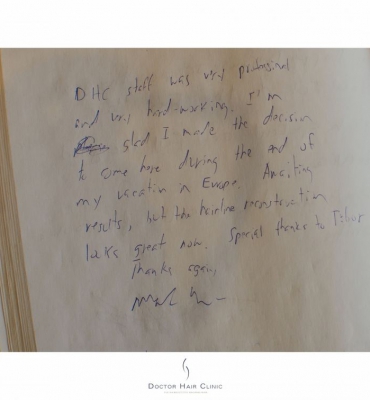 DHC staff was very professional
and very hard-working. I'm
glad I made the decision
to come here during the end of
my vacation in Europe. Awaiting
results, but the hairline reconstruction
looks great now. Special thanks to Tibor
Thanks again,
DOCTOR HAIR CLINIC